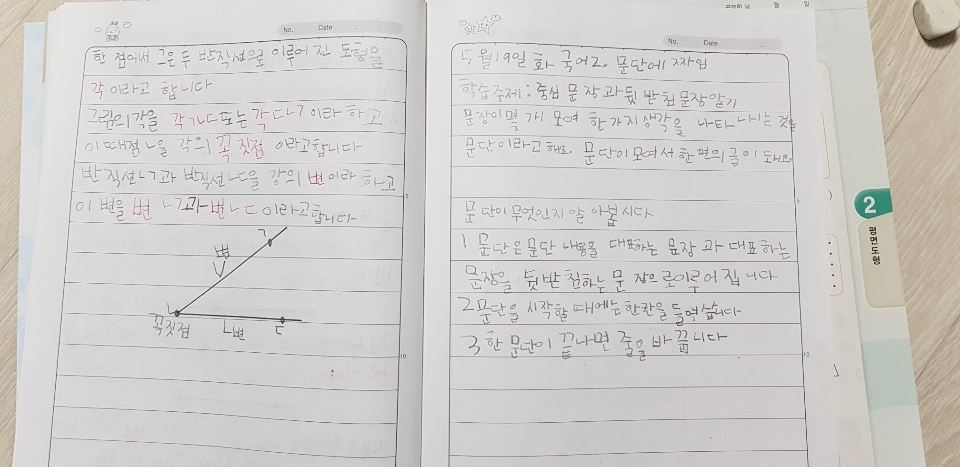 No. Date
한 점에서 그은 두 반직선으로 이루어 진 도형을
각 이라고 합니다
그림의각을 각 ㄱㄴㄷ또는 각 ㄷㄴㄱ이라 하고
이때점ㄴ을 각의 꼭 짓점 이라고합니다
반 직선ㄴㄱ과 반직선ㄴㄷ을 강의 변이라 하고
이 변을 변 ㄴㄱ과 변ㄴㄷ 이라고합니다
ㄱ
변
ㄴ
꼭짓점
변
ㄷ
10
No. Date
5월 19일 화 국어2. 문단에 짜임
학습주제: 중심 문장과 뒷 받침문장알기
문장이 몇 개 모여 한 가지 생각을 나타 나는 것을
문단이라고 해요. 문단이 모여서 한 편의 글이 돼요
5
문단이무엇인지 알 아봅시다
1 문단은 문단 내용을 대표하는 문장 과 대표하는
문장을 뒷받 침하는 문 장으로이루어 집니다
2 문단을 시작할 때에는 한칸을 들여씁니다
3, 한 문단이 끝나면 줄을 바 꿉니다
10
월 일
2
평면도형